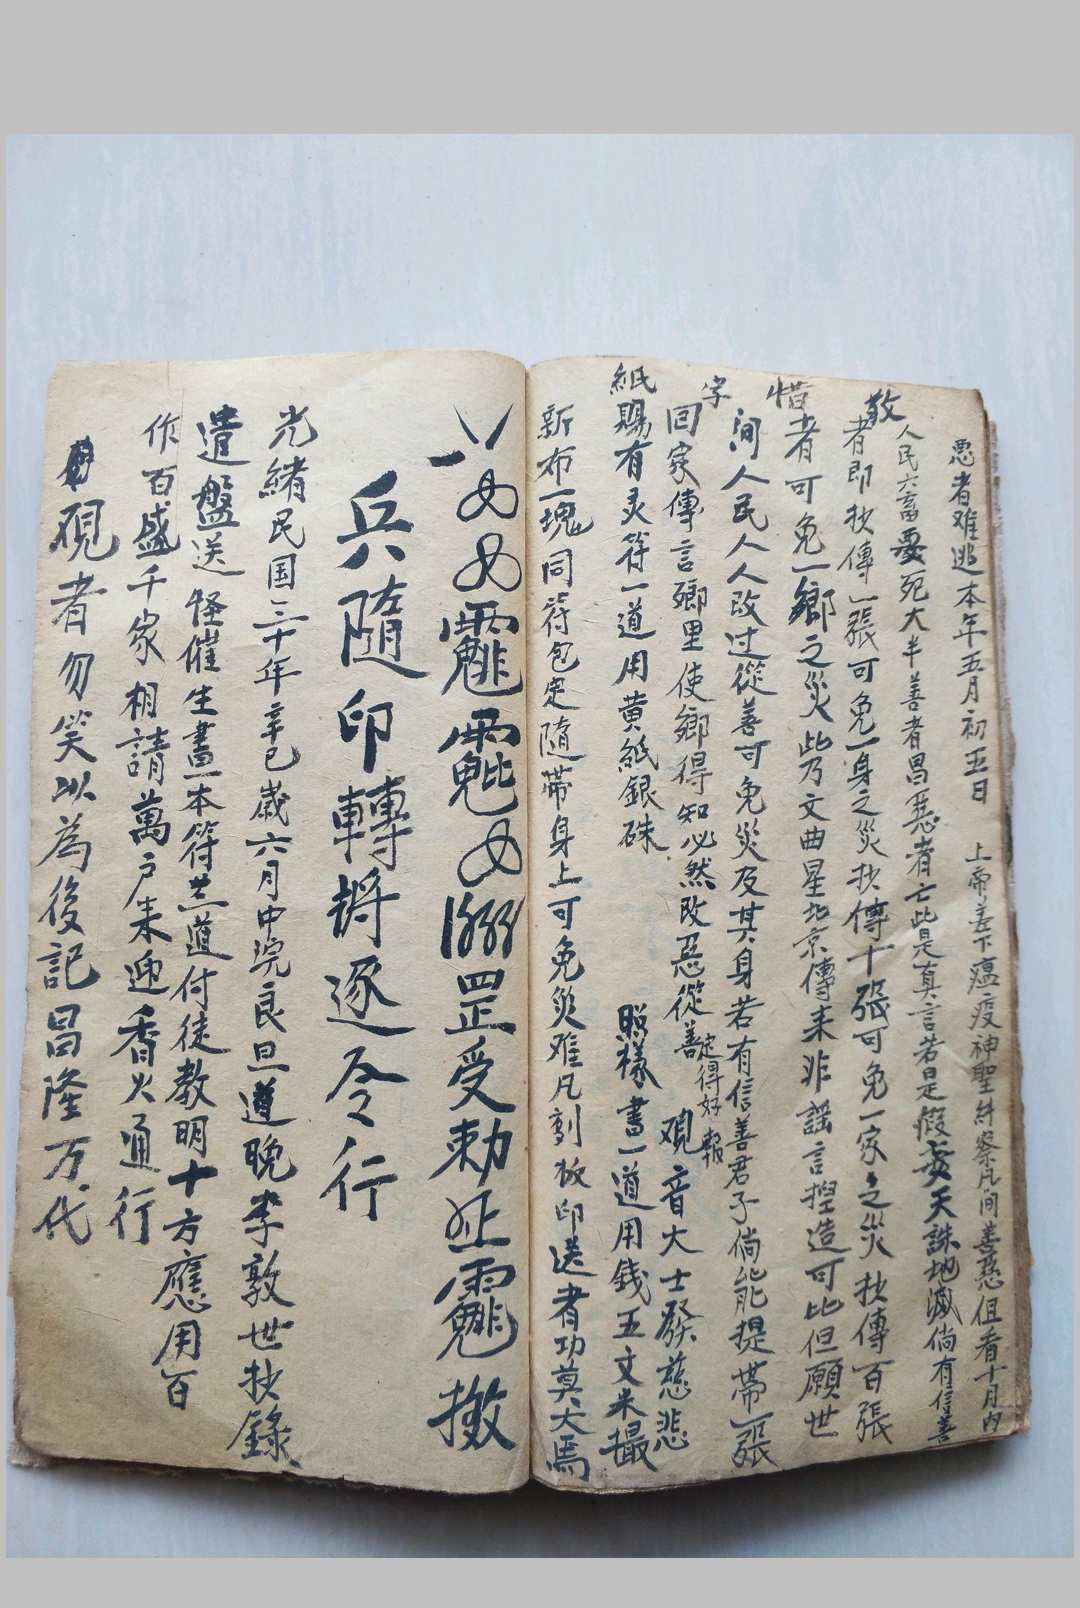 惡者难逃本年五月初五日　上帝差下瘟疫神聖糾察凡间善惡但看十月内
人民六畜要死大半善者昌惡者亡此是真言若是假言天誅地滅倘有信善
者即抄傳一張可免一身之災抄傳十張可免一家之災抄傳百張
敬惜字紙
者可免一鄉之災此乃文曲星北京傳来非謡言揑造可比但願世
间人民人人改过從善可免災及其身若有信善君子倘能提帶一張
回家傳言鄉里使鄉得知必然改惡從善定得好報　观音大士發慈悲
賜有灵符一道用黄紙銀硃　照樣畫一道用錢五文米撮
新布一塊同符包定隨帶身上可免災难凡刻放印送者功莫大焉
罡受勅
兵隨印轉將逐令行
光緒民国三十年辛巳歳六月中浣良旦道晚李敦世抄錄
遣盤送怪催生畫一本符共道付徒教明十方應用百
作百盛千家相請萬户来迎香火通行
观者勿笑以為後記昌隆万代